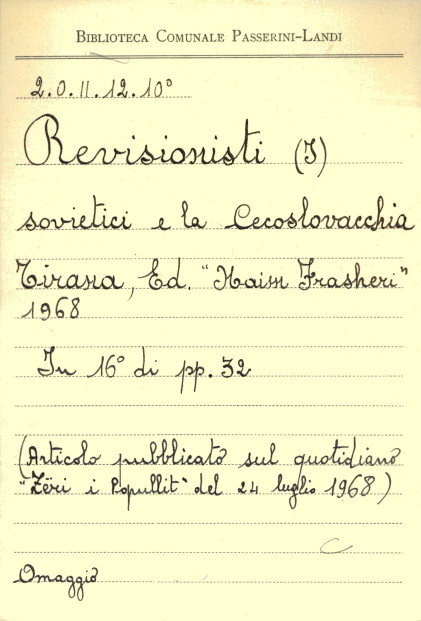 BIBLIOTECA COMUNALE PASSERINI-LANDI
2.0.II.12.10°
Revisionisti (I)
sovietici e la Cecoslovacchia
Tirana, Ed. "Naim Frasheri"
1968
In 16° di pp. 32
(Articolo pubblicato sul quotidiano
"Zëri i Popullit" del 24 luglio 1968)
Omaggio